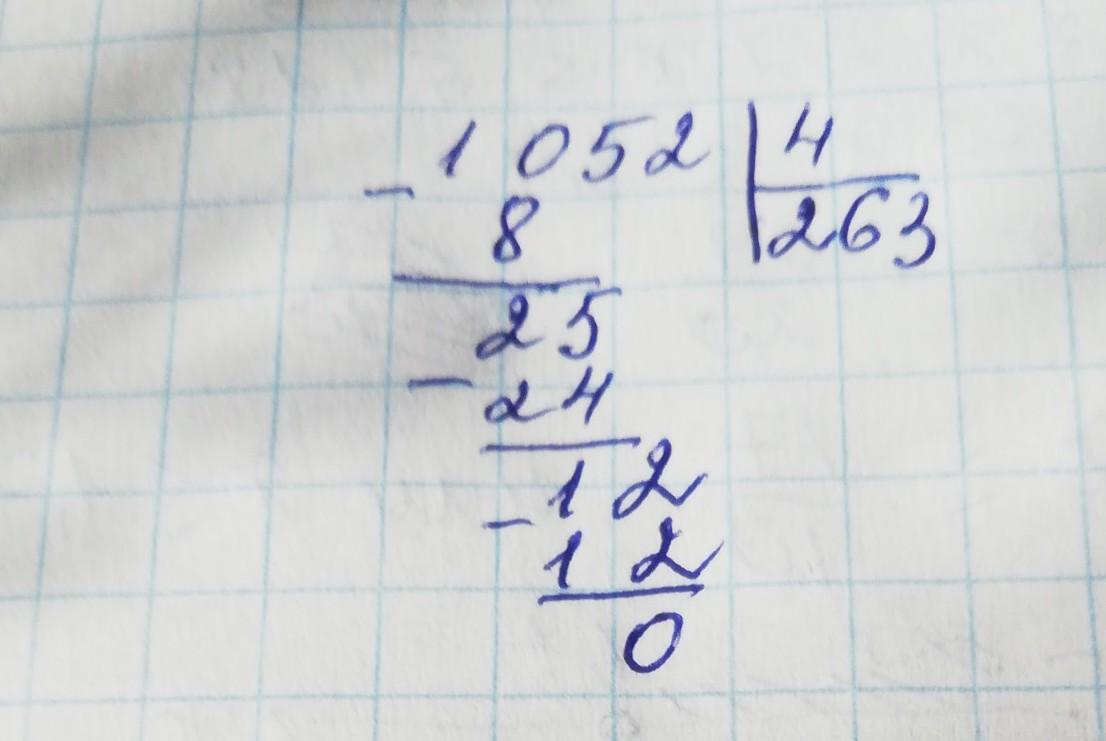 - 1052 | 4
8 | 263
25
- 24
12
- 12
0